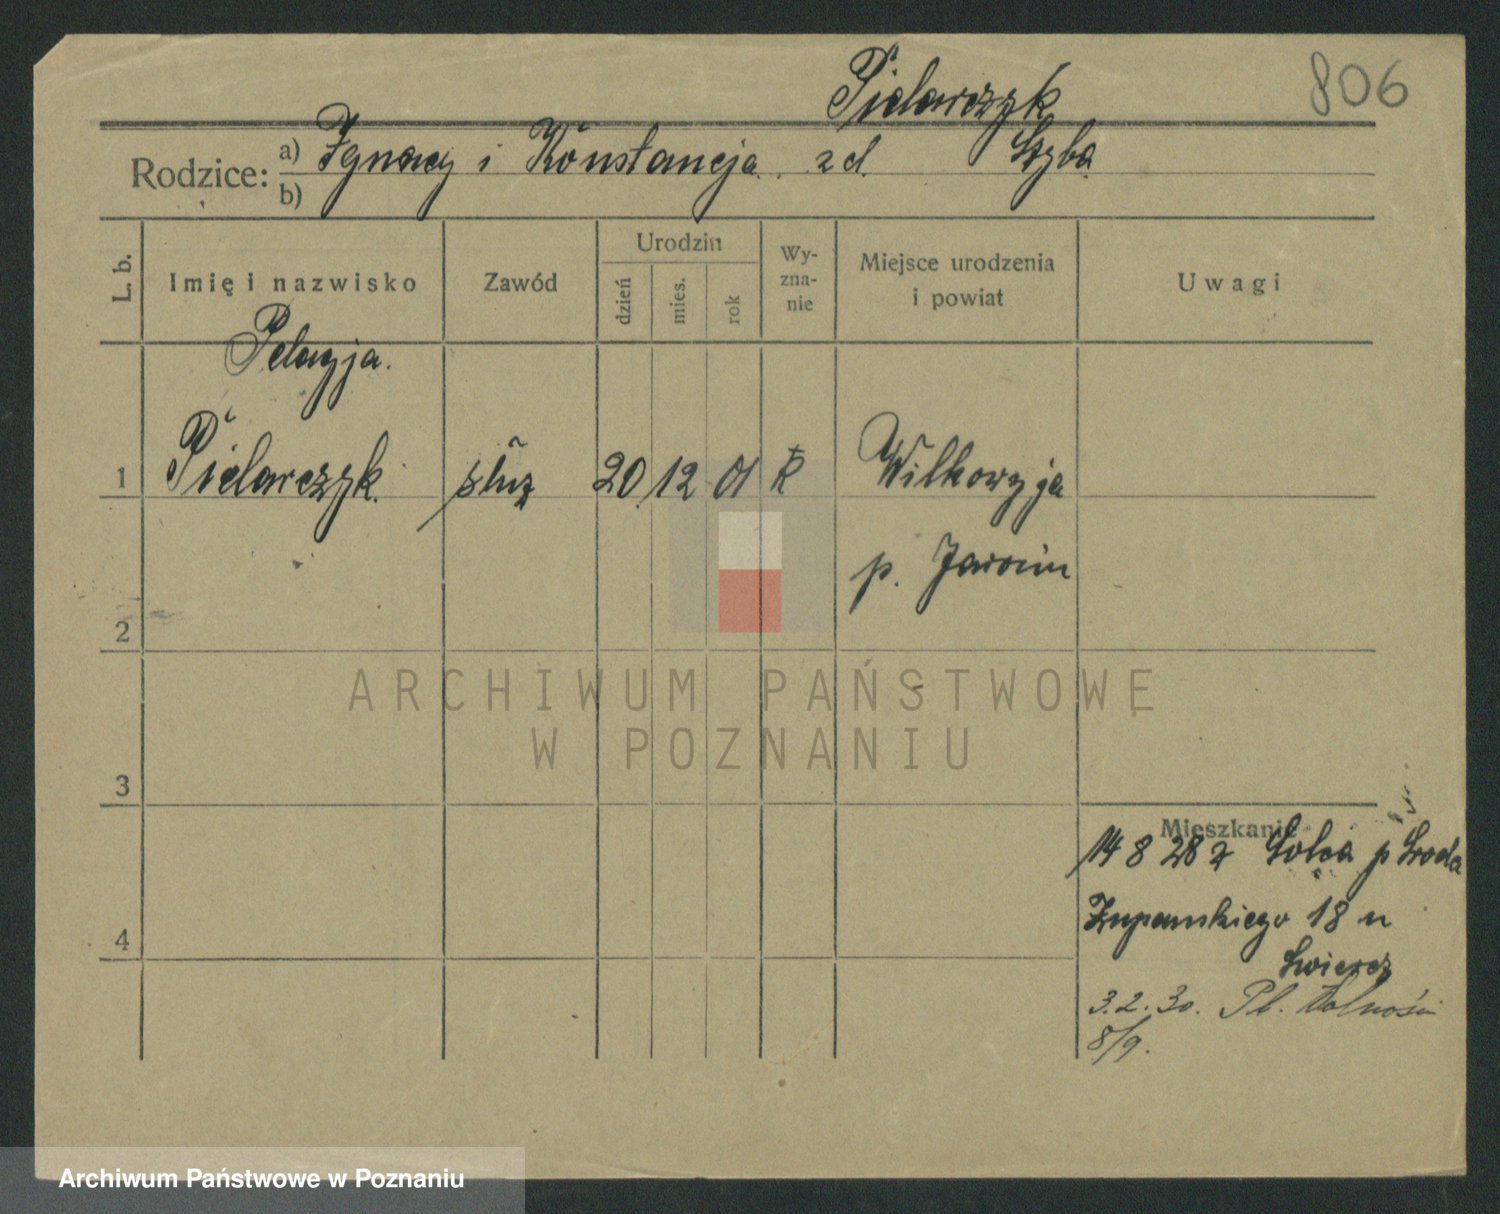 806
Pielarczyk
Rodzice: a) Ignacy i Konstancja zd. Szyba
b)
L. b. Imię i nazwisko Zawód Urodzin dzień mies. rok Wy-zna-nie Miejsce urodzenia i powiat Uwagi
Pelagja.
1 Pielarczyk. służ 20 12 01 K Wilkowyja
p. Jarocin
2
ARCHIWUM PAŃSTWOWE
W POZNANIU
3
Mieszkanie
14 8 28 z p Środa
4
Żupańskiego 18 u
3.2.30. Pl. Wolności
8/9.
Archiwum Państwowe w Poznaniu